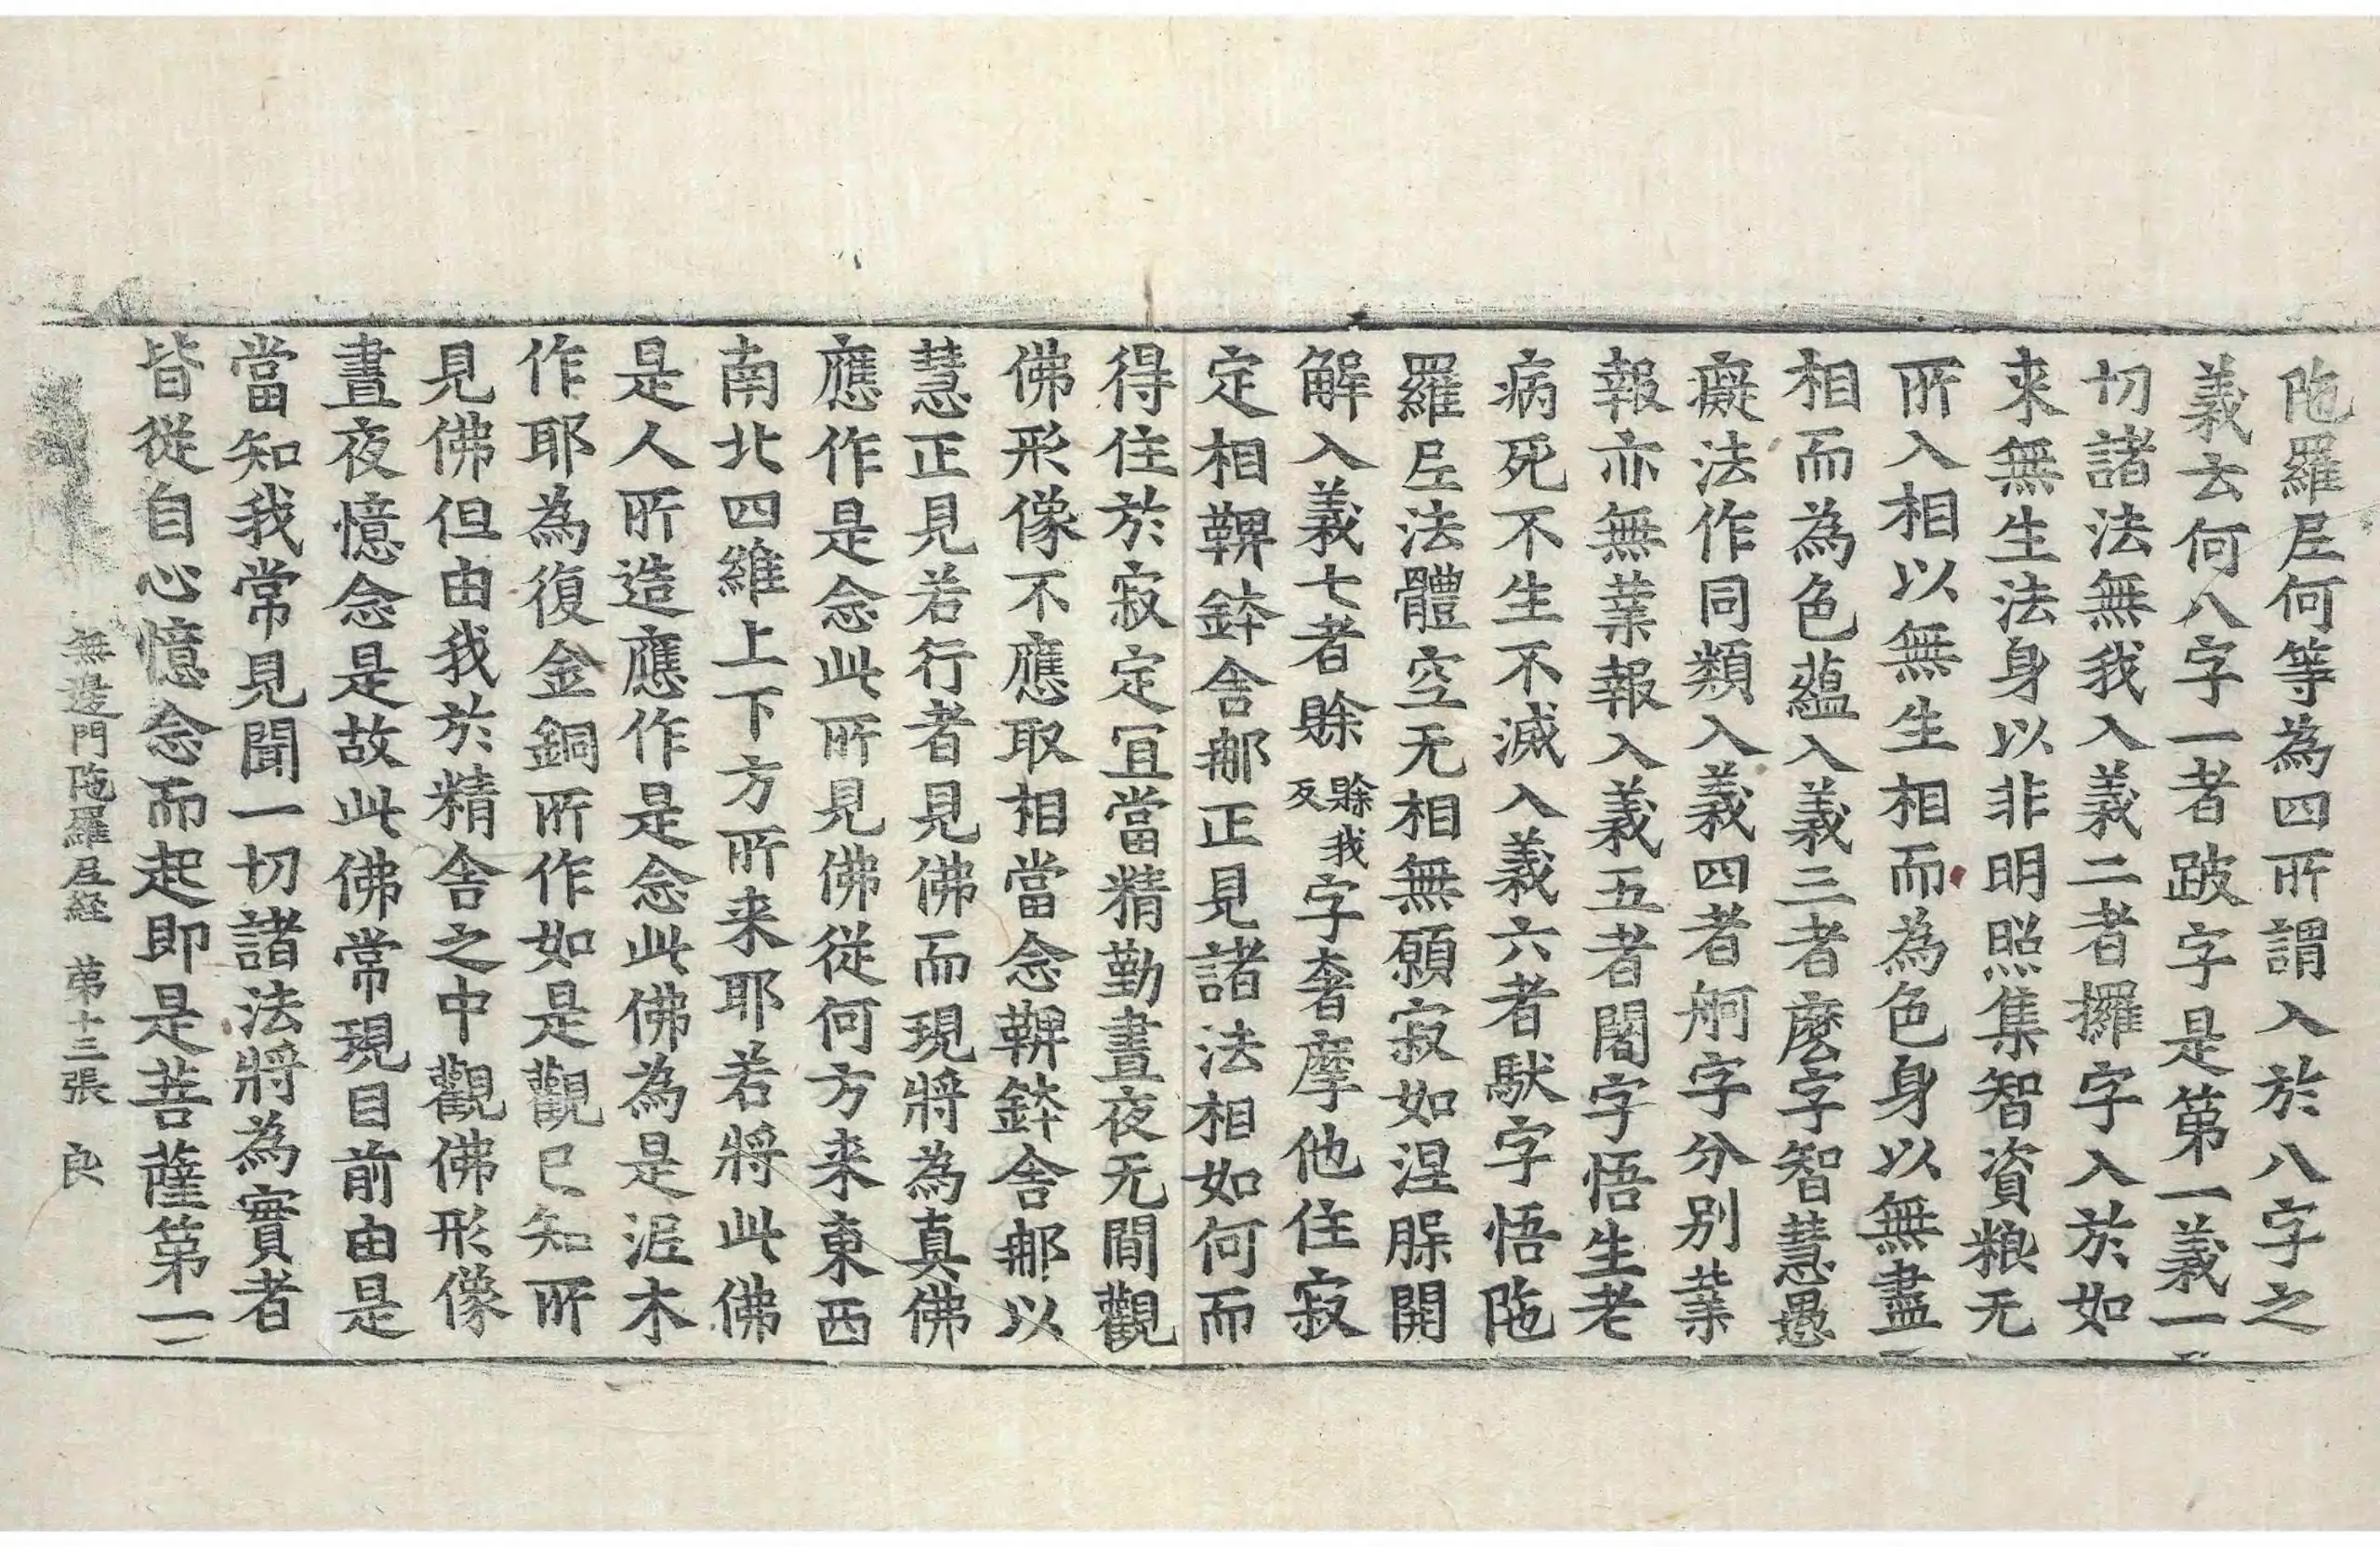 陁羅𡰱何等為四所謂入於八字之
義云何八字一者跛字是第一義一
切諸法無我入義二者攞字入於如
来無生法身以非明照集智資粮无
所入相以無生相而為色身以無盡
相而為色蘊入義三者麽字智慧愚
癡法作同類入義四者舸字分別業
報亦無業報入義五者闍字悟生老
病死不生不滅入義六者馱字悟陁
羅𡰱法體空无相無願寂如涅槃開
解入義七者賒賒我反字奢摩他住寂
定相鞞鉢舍那正見諸法相如何而
得住於寂定冝當精勤晝夜无間觀
佛形像不應取相當念鞞鉢舍那以
慧正見若行者見佛而現將為真佛
應作是念此所見佛従何方来東西
南北四維上下方所来耶若將此佛
是人所造應作是念此佛為是泥木
作耶為復金銅所作如是觀已知所
見佛但由我於精舍之中觀佛形像
晝夜憶念是故此佛常現目前由是
當知我常見聞一切諸法將為實者
皆從自心憶念而起即是菩薩第一
無邊門陁羅𡰱経 第十三張 良